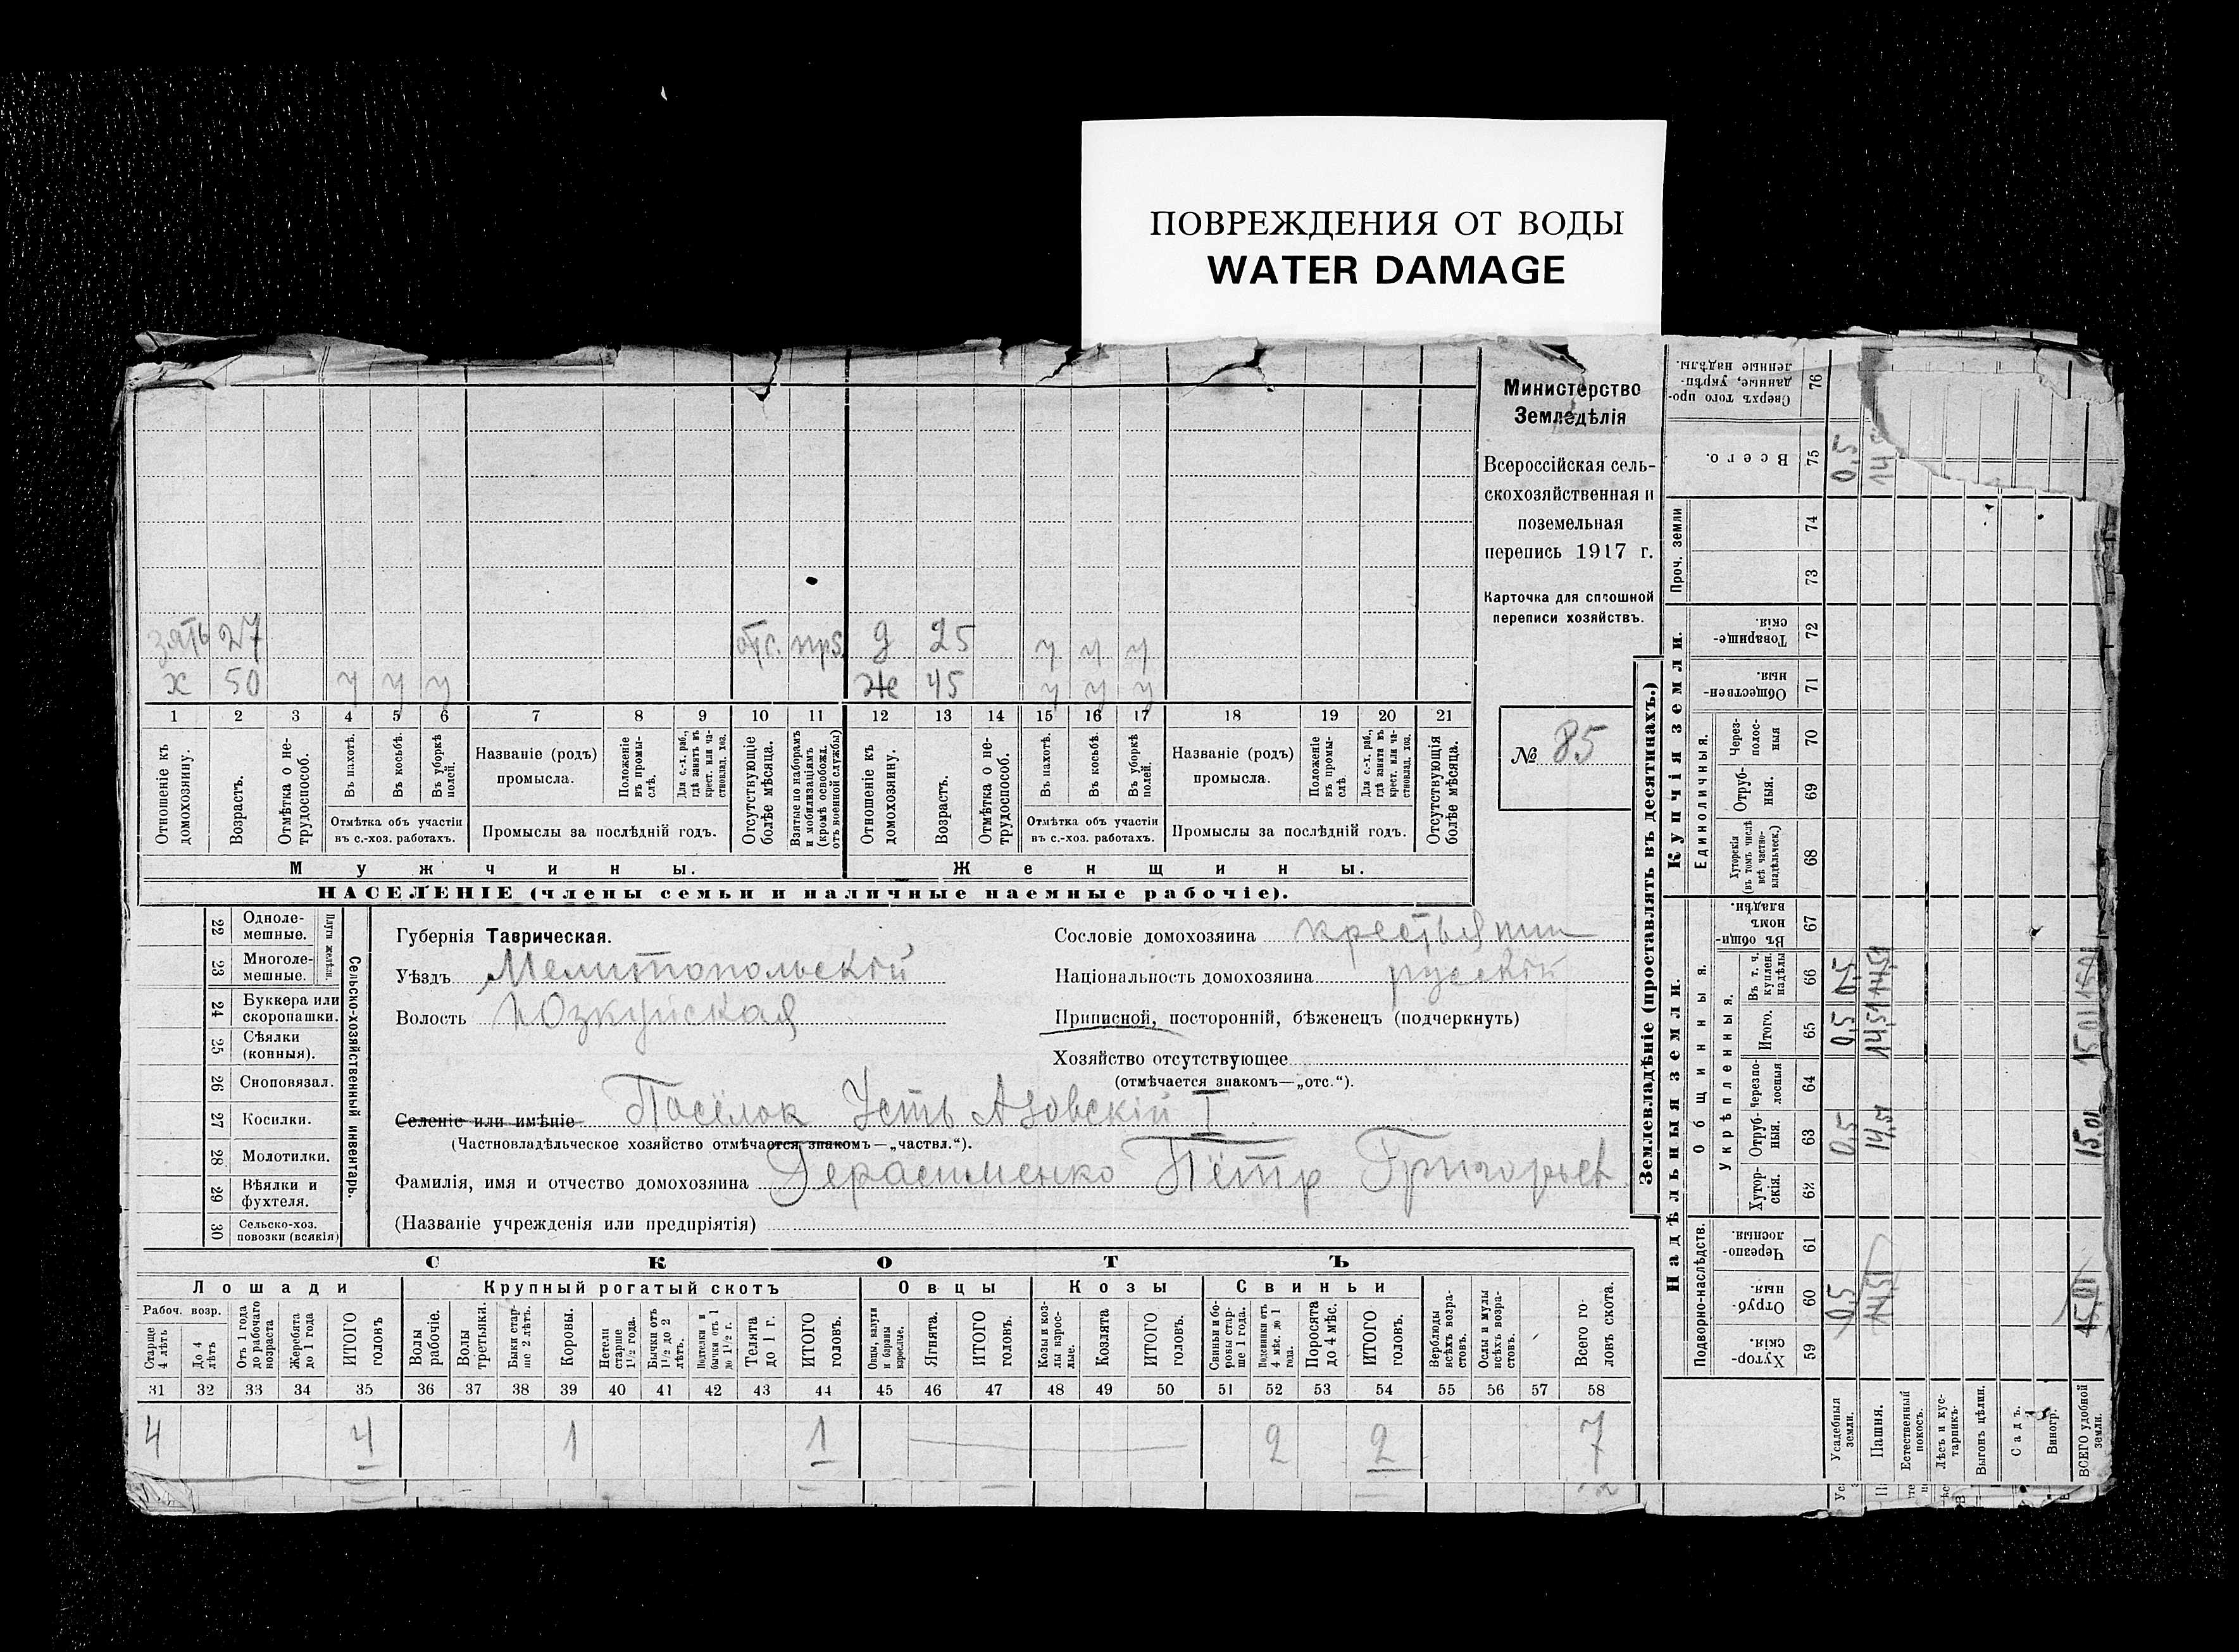 ПОВРЕЖДЕНИЯ ОТ ВОДЫ
WATER DAMAGE
Министерство
Земледѣлія
Всероссійская сель-
скохозяйственная и
поземельная
перепись 1917 г.
Карточка для сплошной
переписи хозяйствъ.
№ 85
зять 27 отс. д 25 у у у
х 50 у у у ж 45 у у у
1 2 3 4 5 6 7 8 9 10 11 12 13 14 15 16 17 18 19 20 21
Отношеніе къ домохозяину.
Возрастъ.
Отмѣтка о не-трудоспособ.
Въ пахотѣ.
Въ косьбѣ.
Въ уборкѣ полей.
Отмѣтка объ участіи
въ с.-хоз. работахъ.
Названіе (родъ)
промысла.
Положеніе въ промы-слѣ.
Для с.-х. раб., гдѣ занятъ въ крест. или ча-стновлад. хоз.
Промыслы за послѣдній годъ.
Отсутствующіе болѣе мѣсяца.
Взятые по наборамъ и мобилизаціямъ (кромѣ освобожд. отъ военной службы)
Отношеніе къ домохозяину.
Возрастъ.
Отмѣтка о не-трудоспособ.
Въ пахотѣ.
Въ косьбѣ.
Въ уборкѣ полей.
Отмѣтка объ участіи
въ с.-хоз. работахъ.
Названіе (родъ)
промысла.
Положеніе въ промы-слѣ.
Для с.-х. раб., гдѣ занята въ крест. или ча-стновлад. хоз.
Промыслы за послѣдній годъ.
Отсутствующія болѣе мѣсяца.
Мужчины.
Женщины.
НАСЕЛЕНІЕ (члены семьи и наличные наемные рабочіе).
22 Одноле-мешные.
23 Многоле-мешные.
Плуги желѣзн.
24 Буккера или скоропашки.
25 Сѣялки (конныя).
26 Сноповязал.
27 Косилки.
28 Молотилки.
29 Вѣялки и фухтеля.
30 Сельско-хоз. повозки (всякія)
Сельско-хозяйственный инвентарь.
Губернія Таврическая.
Уѣздъ Мелитопольскій
Волость Юзкуйская
Сословіе домохозяина крестьянин
Національность домохозяина русскій
Приписной, посторонній, бѣженецъ (подчеркнуть)
Хозяйство отсутствующее
(отмѣчается знакомъ—„отс.“).
Селеніе или имѣніе Посёлок Усть Азовскій I
(Частновладѣльческое хозяйство отмѣчается знакомъ—„частвл.“).
Фамилія, имя и отчество домохозяина Герасименко Пётр Григорьев
(Названіе учрежденія или предпріятія)
СКОТЪ
Лошади Крупный рогатый скотъ Овцы Козы Свиньи
Рабоч. возр.
Старше 4 лѣтъ
До 4 лѣтъ
Отъ 1 года до рабочаго возраста
Жеребята до 1 года
ИТОГО головъ
Волы рабочіе.
Волы третьяки.
Быки стар-ше 2 лѣтъ.
Коровы.
Нетели старше 1 1/2 года.
Бычки отъ 1 1/2 до 2 лѣтъ.
Подтелки и бычки отъ 1 до 1 1/2 г.
Телята до 1 г.
ИТОГО головъ.
Овцы, валухи и бараны взрослые.
Ягнята.
ИТОГО головъ.
Козы и коз-лы взрос-лые.
Козлята
ИТОГО головъ.
Свиньи и бо-ровы стар-ше 1 года.
Подсвинки отъ 4 мѣс. до 1 года.
Поросята до 4 мѣс.
ИТОГО головъ.
Верблюды всѣхъ возра-стовъ.
Ослы и мулы всѣхъ возра-стовъ.
Всего го-ловъ скота.
31 32 33 34 35 36 37 38 39 40 41 42 43 44 45 46 47 48 49 50 51 52 53 54 55 56 57 58
4 4 1 1 2 2 7
Землевладѣніе (проставлять въ десятинахъ.)
Надѣльныя земли.
Купчія земли.
Проч. земли
Подворно-наслѣдств.
Общинныя.
Укрѣпленныя.
Единоличныя.
Хутор-скія. 59
Отруб-ныя. 60
Черезпо-лосныя. 61
Хутор-скія. 62
Отруб-ныя. 63
Черезпо-лосныя 64
Итого. 65
Въ т. ч. куплен. надѣлы 66
Въ общин-номъ владѣн. 67
Хуторскія (въ томъ числѣ всѣ частно-владѣльческ.) 68
Отруб-ныя. 69
Через-полос-ныя 70
Обществен-ныя. 71
Товарище-скія. 72
73
74
Всего. 75
Сверхъ того про-данные, укрѣп-ленные надѣлы. 76
Усадебныя земли. 0,5 0,5 0,5 0,5 0,5
Пашня. 14,51 14,51 14,51 14,51 14
Естественный покосъ.
Лѣсъ и кус-тарникъ.
Выгонъ цѣлин.
Садъ.
Виногр.
ВСЕГО удобной земли. 15,01 15,01 15,01 15,01